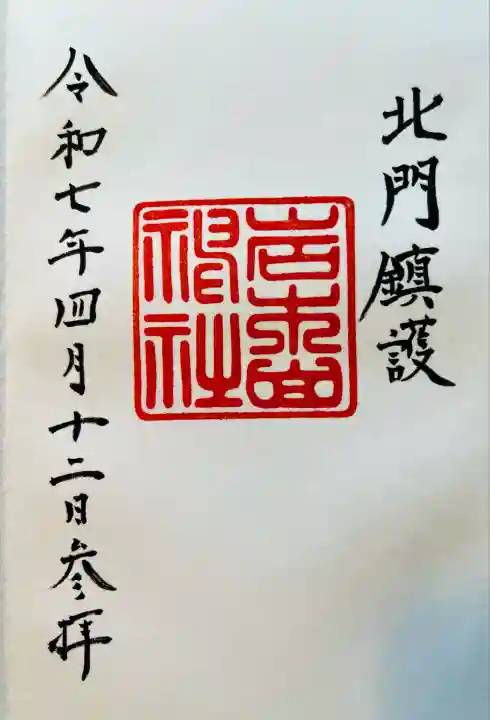 北門鎮護
岩木山
神社
令和七年四月十二日参拝